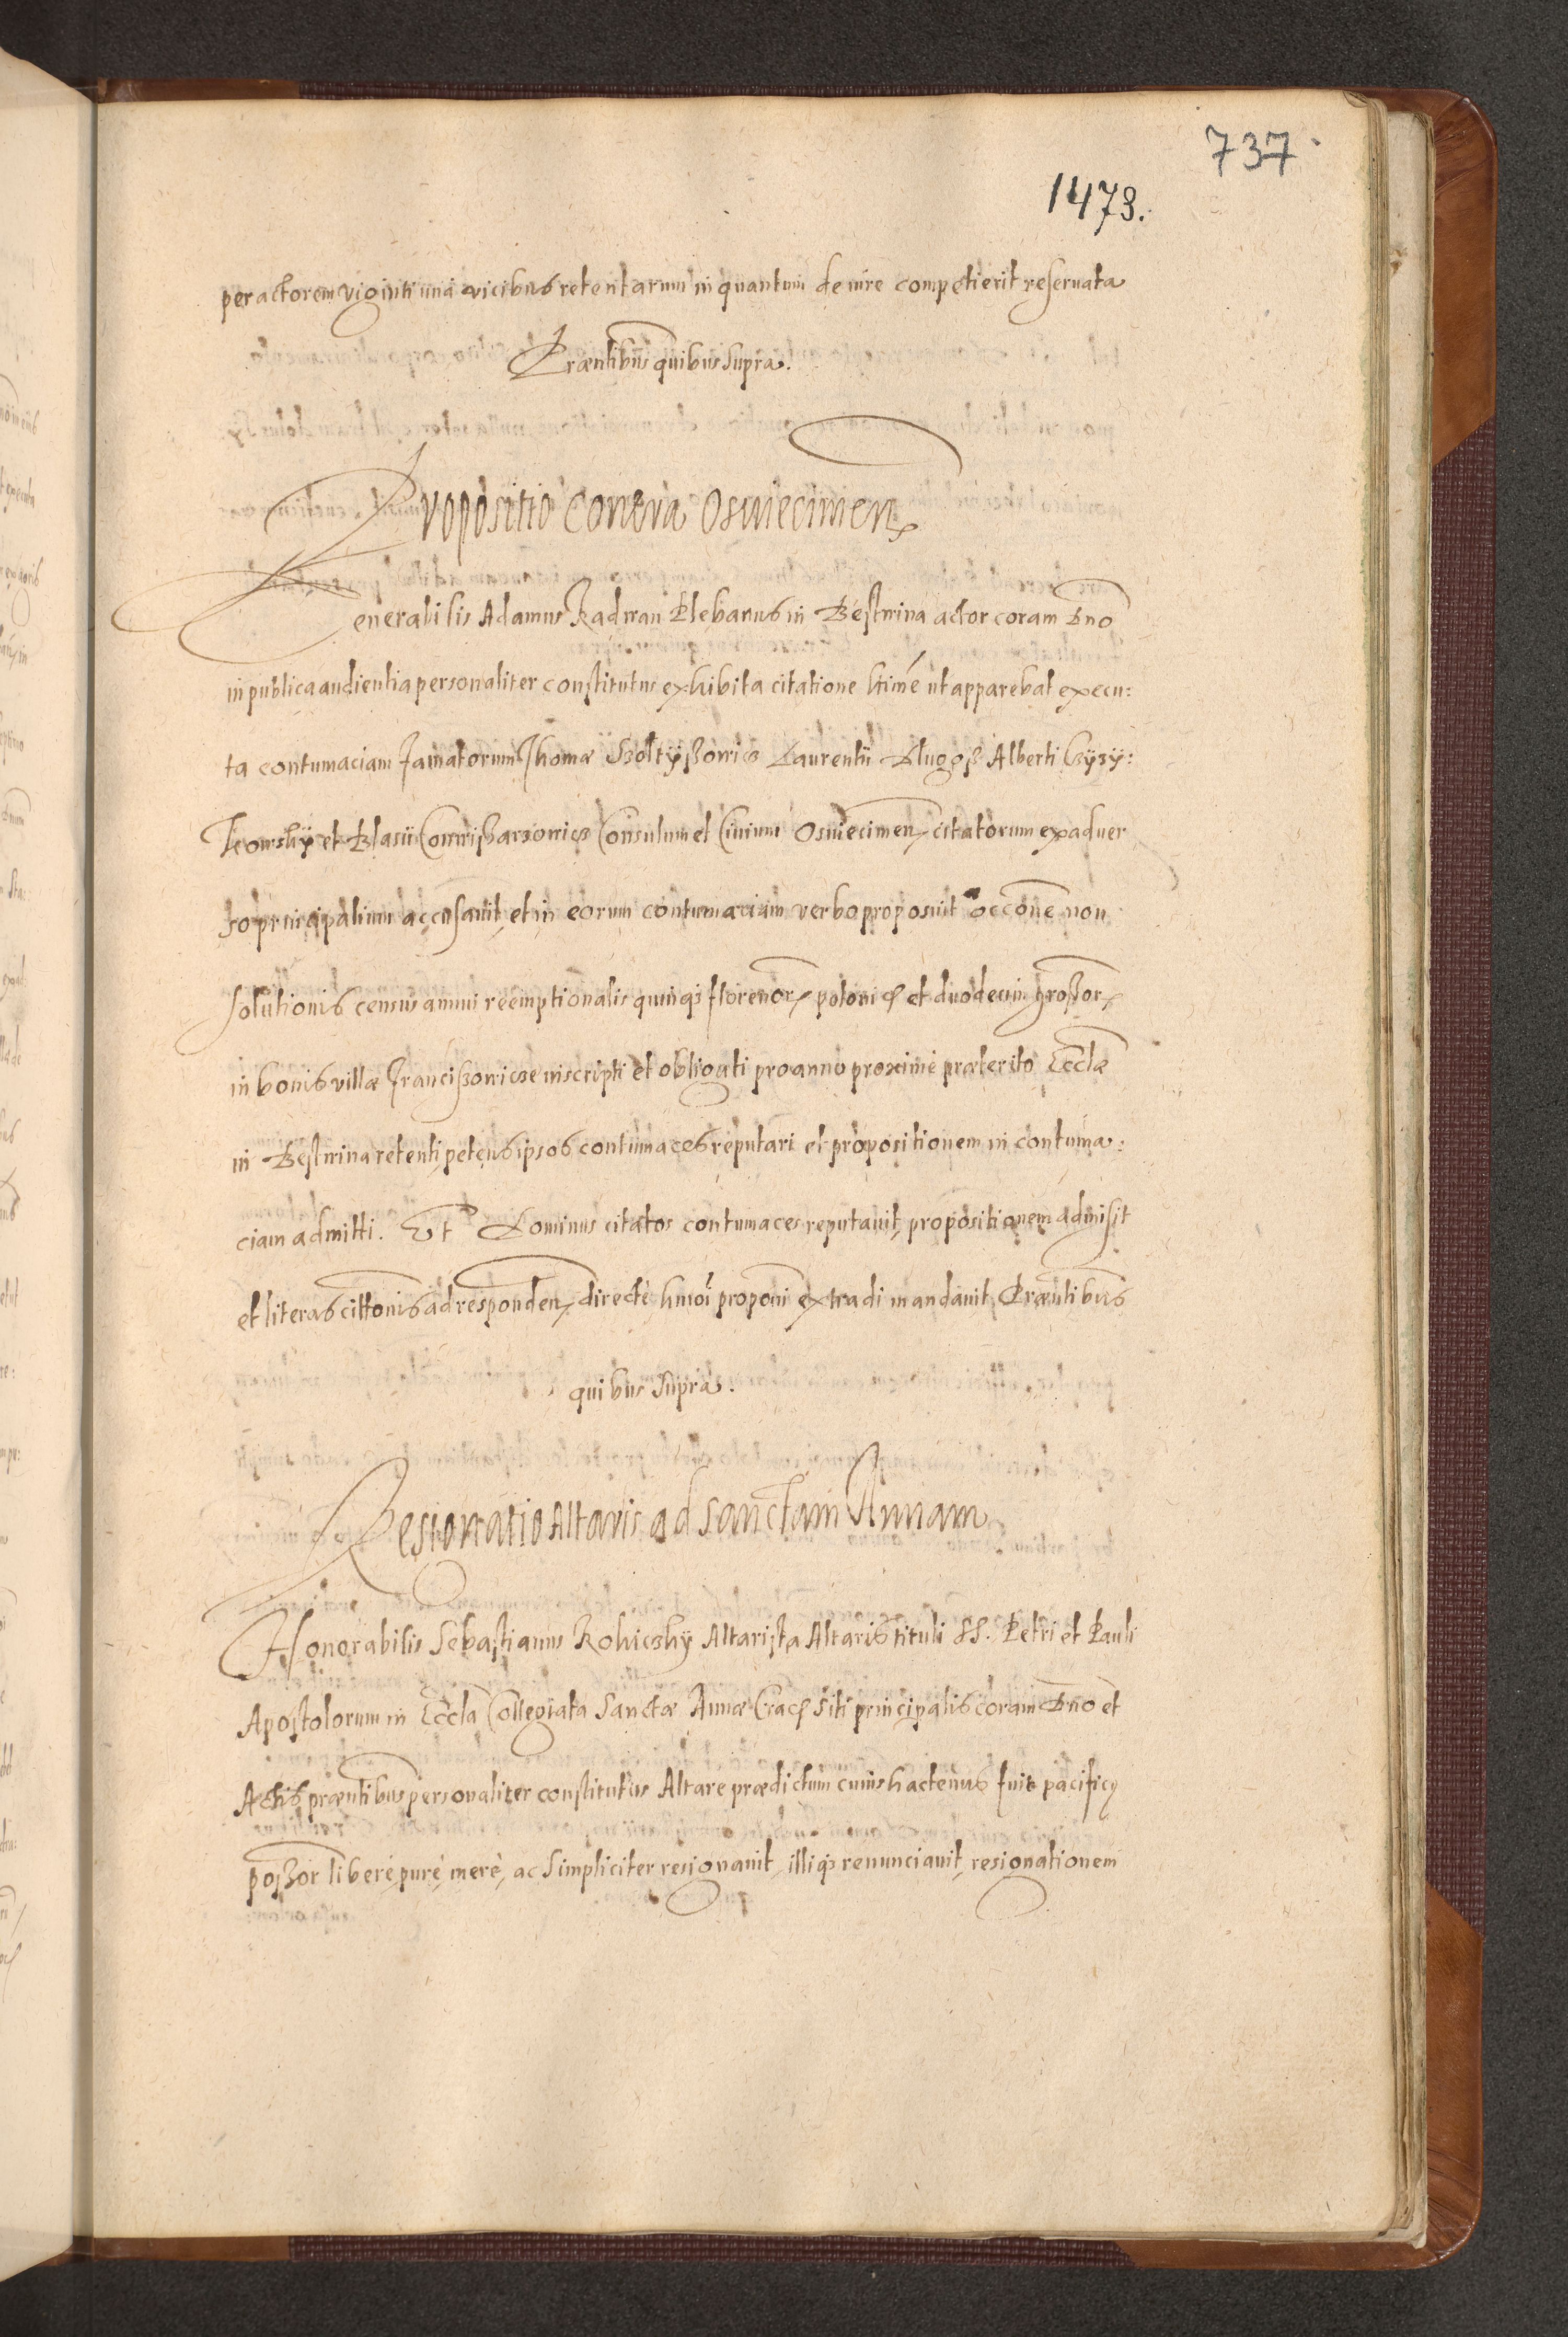 737
1473.
per actorem viginti una vicibus retentarum in quantum de iure competierit reseruata
Præntibus quibus supra.
Propositio Contra Oswiecimen
Venerabilis Adamus Radwan Plebanus in Bestwina actor coram Dno
in publica audientia personaliter constitutus exhibita citatione ltimè ut apparebat execu:
ta contumaciam famatorum Thomæ Laurentii Dlugosz Alberti
et Blasii Consulum et Ciuium Oswiecimen citatorum ex aduer
so principalium accusauit, et in eorum contumaciam verbo proposuit occõne non
solutionis census annui reemptionalis quinq florenor polonic et duodecim grossor
in bonis villæ inscripti et obligati pro anno proximè præterito Eccl̃æ
in Bestwina retenti, petens ipsos contumaces reputari et propositionem in contuma:
ciam admitti. Et Dominus citatos contumaces reputauit, propositionem admisit
et literas cittonis ad responden directè hmoi proponi extradi mandauit, Præntibus
quibus supra.
Resignatio Altaris ad Sanctam Annam
Honorabilis Sebastianus Rokicsky Altarista Altaris tituli SS. Petri et Pauli
Apostolorum in Eccl̃a Collegiata Sanctæ Annæ Crac siti principalis coram Dno et
Actis præntibus personaliter constitutus Altare prædictum cuius hactenus fuit pacificq
poszor liberè, purè, merè, ac simpliciter resignauit, illiq renunciauit, resignationem